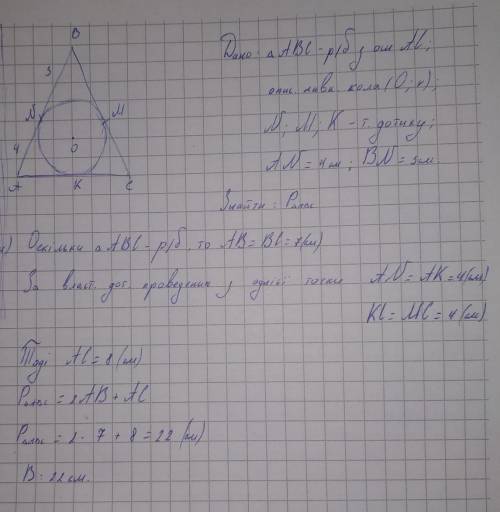 B
3
N
M
4
O
A
K
C
Дано: △ABC - р/б з осн AC;
опис. навк. кола (O; r);
N; M; K - т. дотику;
AN = 4 см; BN = 3 см.
Знайти: P△ABC
Оскільки △ABC - р/б, то AB = BC = 7 (см)
За власт. дот. проведених з однієї точки AN = AK = 4 (см)
KC = MC = 4 (см)
Тоді AC = 8 (см)
P△ABC = 2AB + AC
P△ABC = 2 · 7 + 8 = 22 (см)
В: 22 см.